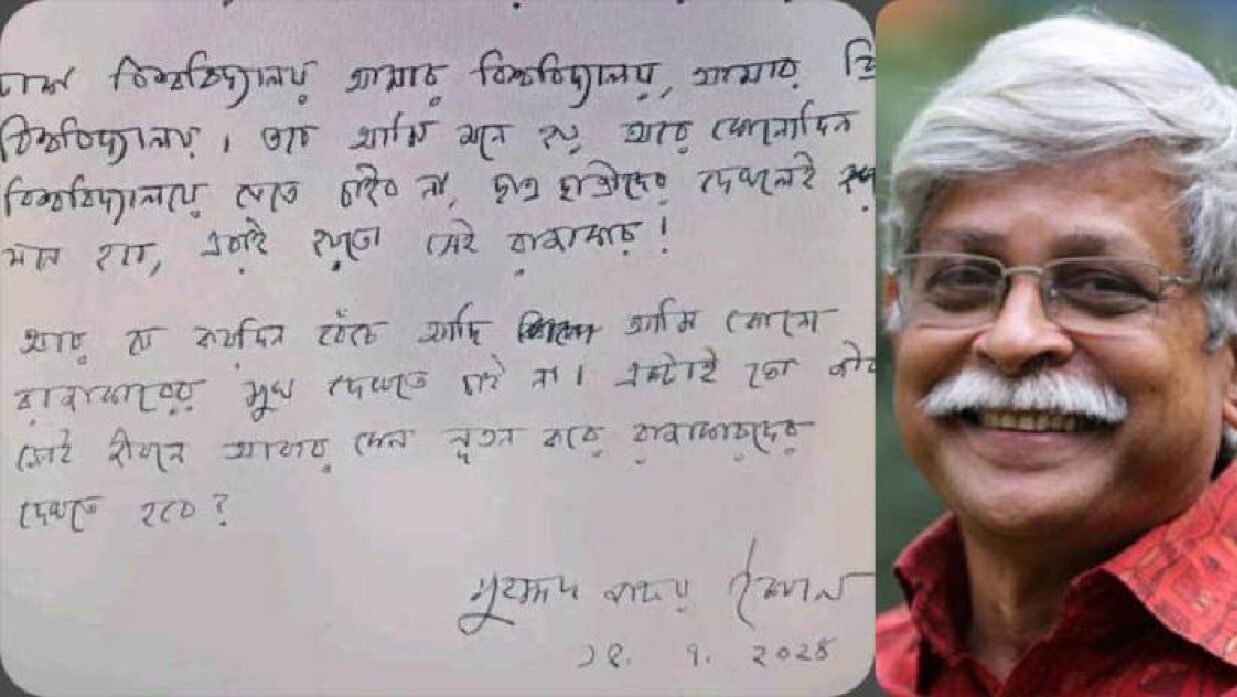 ঢাকা বিশ্ববিদ্যালয় আমার বিশ্ববিদ্যালয়, আমার প্রি
বিশ্ববিদ্যালয়। তবে আমি মনে হয় আর কোনোদিন
বিশ্ববিদ্যালয়ে যেতে চাইব না, ছাত্র ছাত্রীদের দেখলেই
মনে হবে, এরাই হয়তো সেই রাজাকার!
আর যে কয়দিন বেঁচে আছি আমি কোনো
রাজাকারের মুখ দেখতে চাই না। একটাই তো জীব
সেই জীবনে আবার কেন নূতন করে রাজাকারদের
দেখতে হবে?
মুহম্মদ জাফর ইকবাল
১৪. ৭. ২০২৪